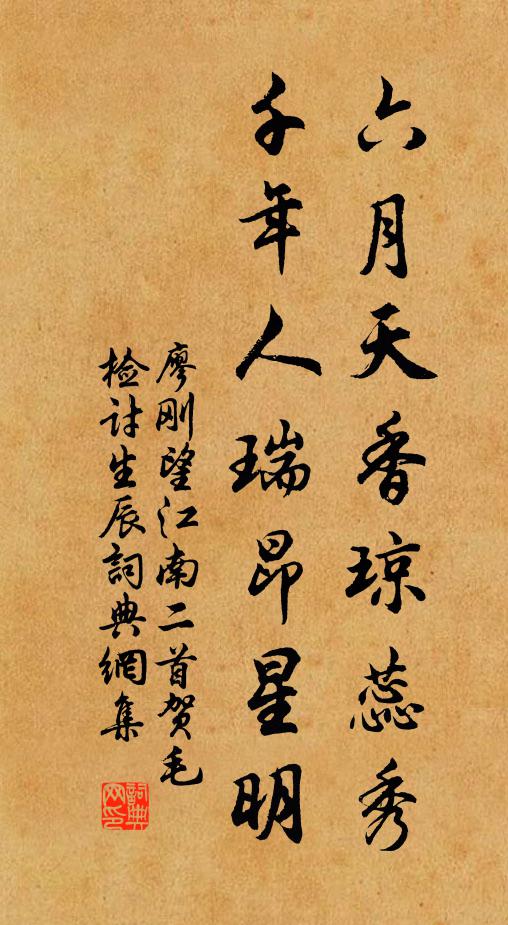 六月天香琼蕊秀
千年人瑞昂星明
廖刚望江南二首贺毛
检讨生辰詞典網集
詞典网印